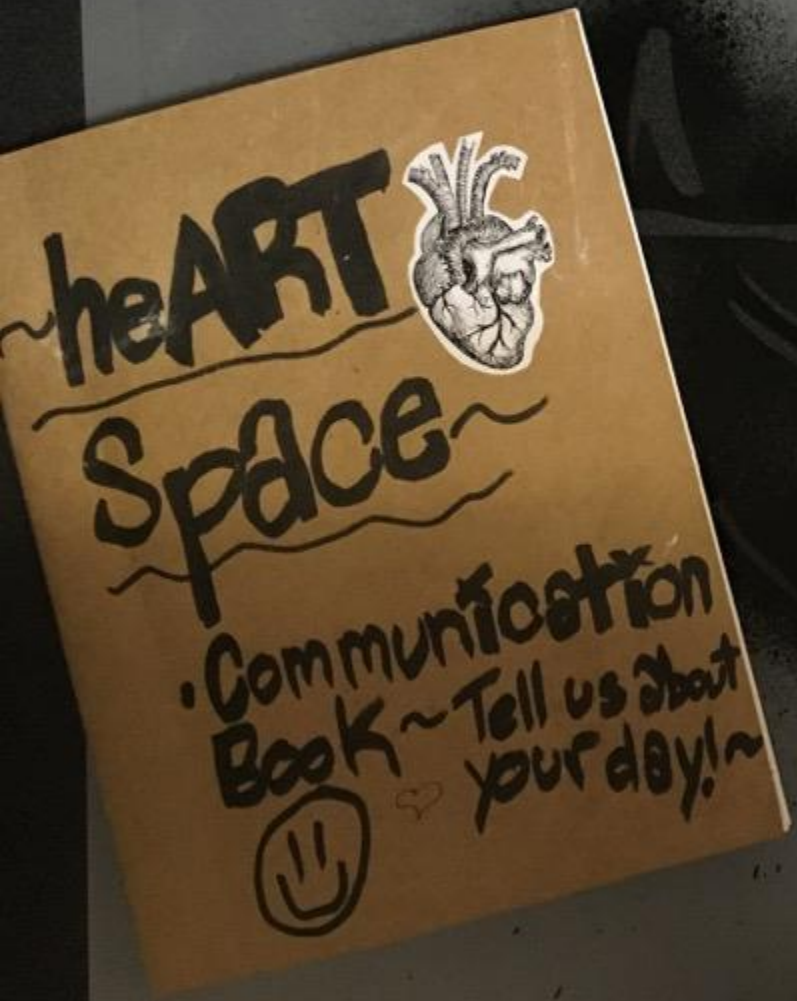 ~heART
Space~
·Communication
Book~Tell us about
your day!~